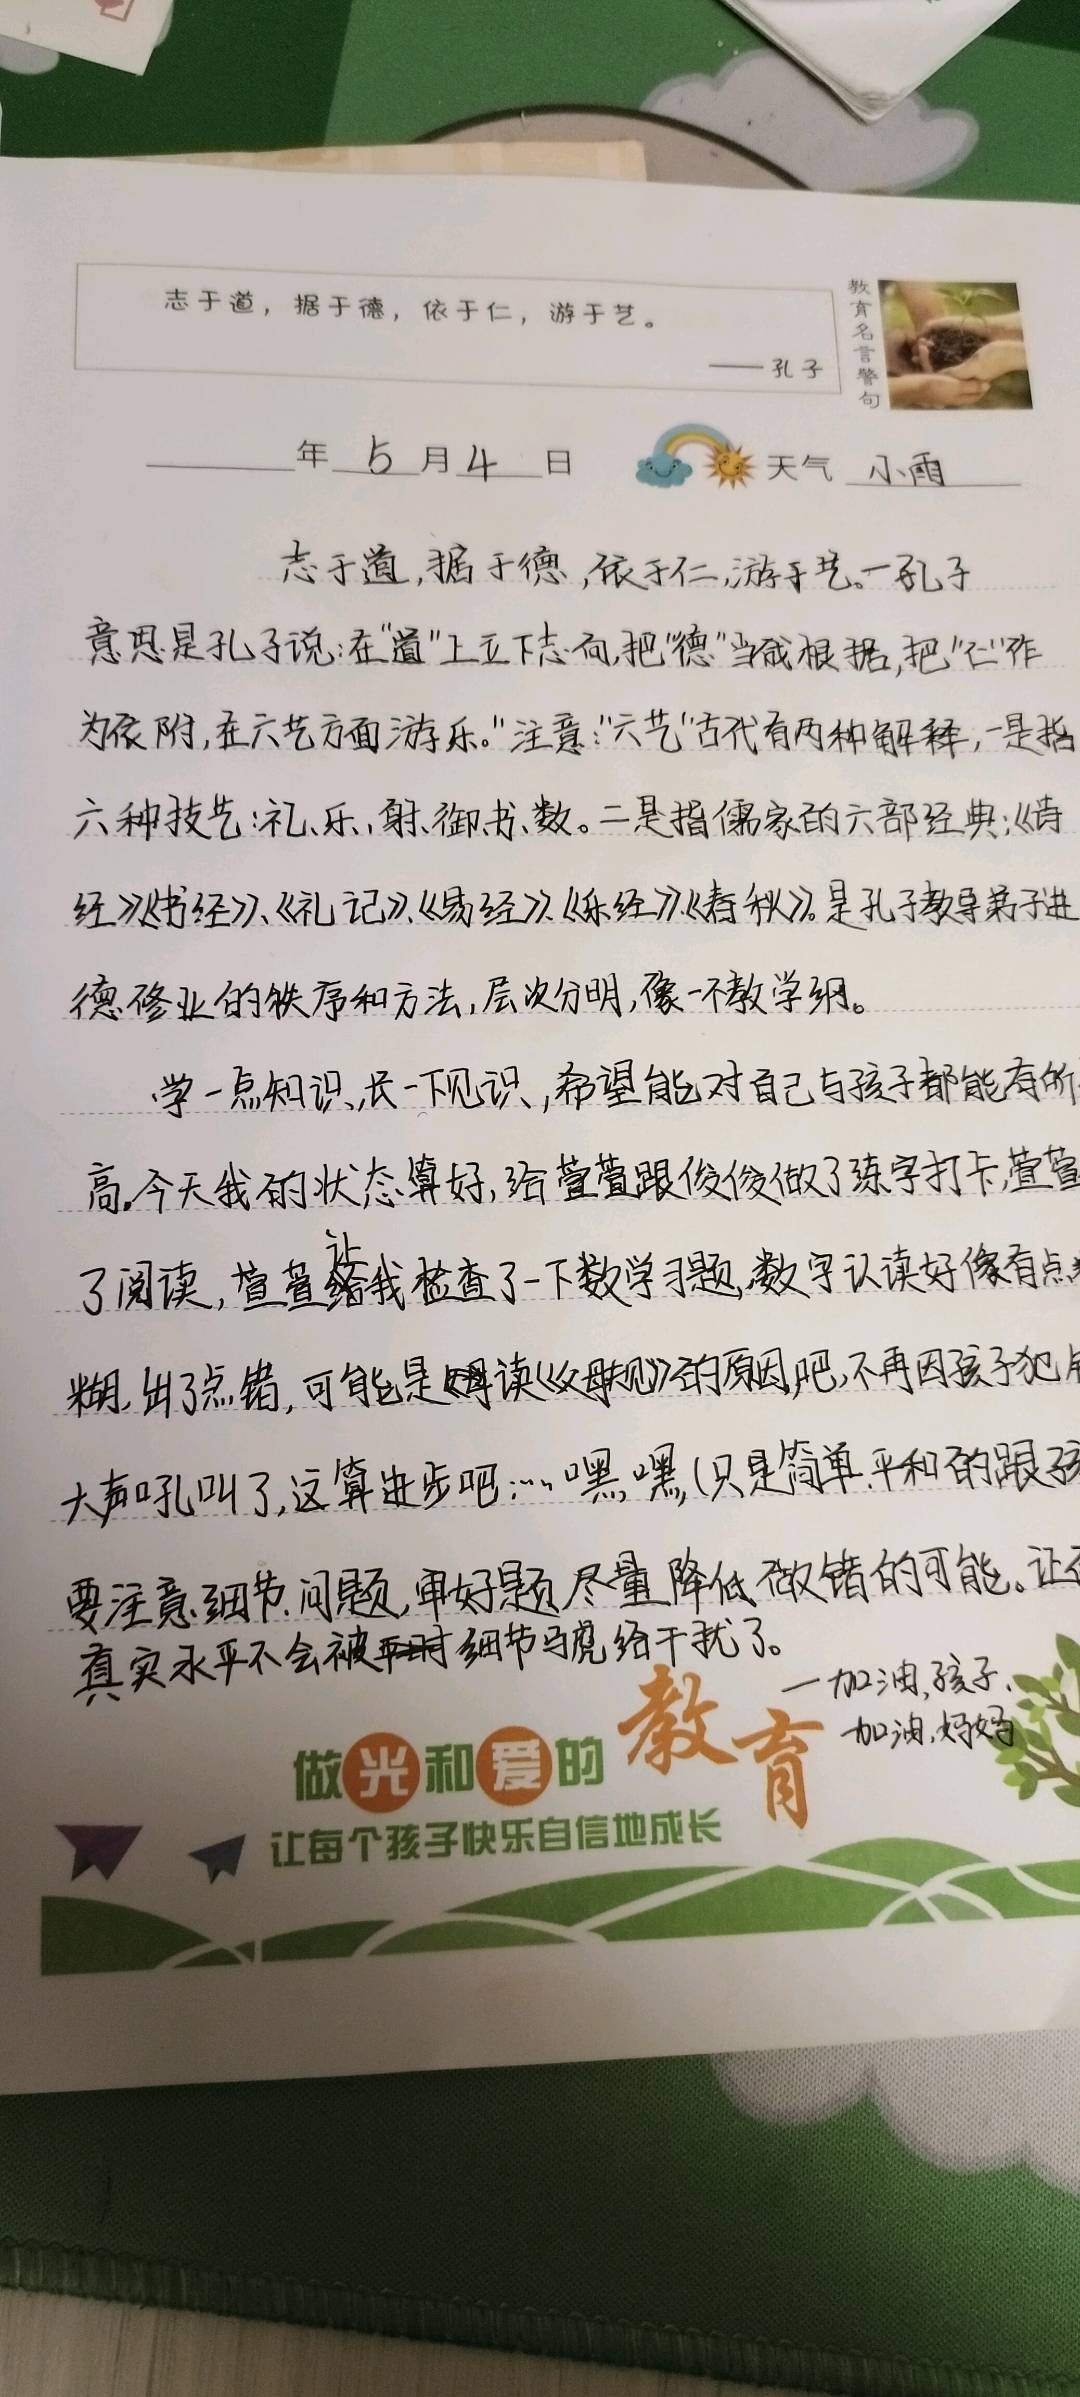 志于道，据于德，依于仁，游于艺。
——孔子
教育名言警句
年 5 月 4 日 天气 小雨
志于道,据于德,依于仁,游于艺。一孔子
意思是孔子说:在"道"上立下志向,把"德"当成根据,把"仁"作
为依附,在六艺方面游乐。"注意:"六艺"古代有两种解释,一是指
六种技艺:礼、乐、射、御、书、数。二是指儒家的六部经典:《诗
经》《书经》、《礼记》、《易经》、《乐经》、《春秋》。是孔子教导弟子进
德修业的秩序和方法,层次分明,像一不教学纲。
学一点知识,长一下见识,希望能对自己与孩子都能有所
高。今天我的状态算好,给萱萱跟俊俊做了练字打卡,萱萱
了阅读,萱萱让我检查了一下数学习题,数字认读好像有点
糊,出了点错,可能是读《父母规》的原因吧,不再因孩子犯
大声吼叫了,这算进步吧:…嘿,嘿,(只是简单.平和的跟孩
要注意细节.问题,审好题,尽量降低做错的可能。让
真实水平不会被细节马虎给干扰了。
一加油,孩子.
加油,妈妈
做光和爱的教育
让每个孩子快乐自信地成长